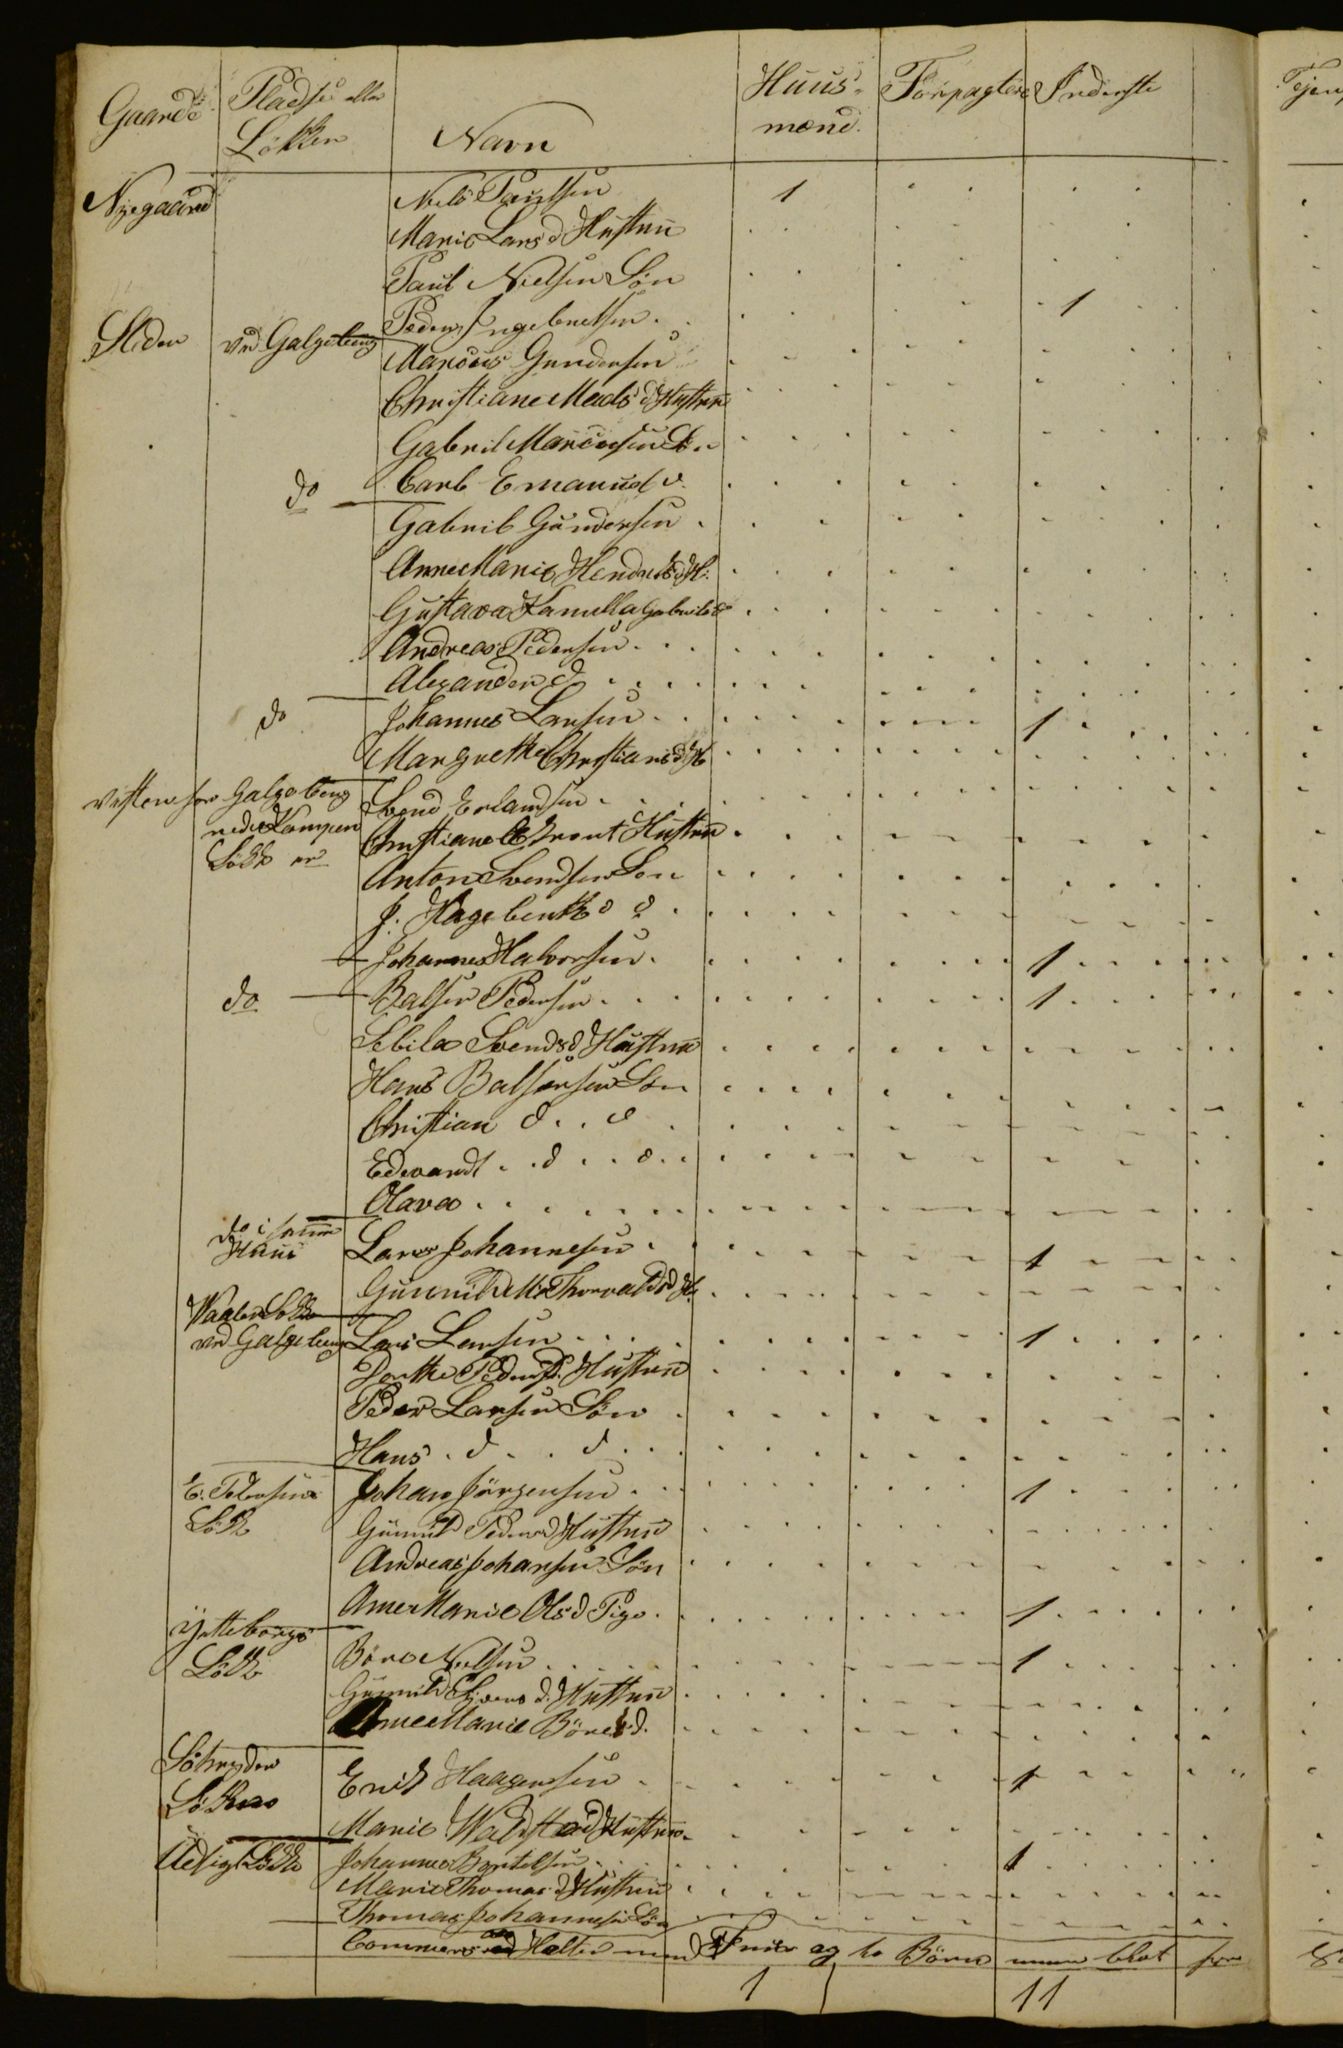 Gaarde Pladse eller Løkker Navn Huus-mænd. Forpagtere Inderste Tjen
Nyegaard Niels Paulsen 1
Marie Larsd Hustrue
Paul Nielsen Søn
Peder Ingebretsen 1
Sliden ved Galgeberg Marcus Gundersen
Christiane Madsd Hustrue
Gabriel Marcussen Søn
Carl Emanuel d
do Gabriel Gundersen
Anne Marie Hendriksd H.
Gustava Kamilla Gabrielsd
Andreas Pedersen
Alexander d
do Johannes Larsen 1
Margrethe Christiansd H
Vesten for Galgeberg Svend Erlandsen
nedre Kampen Christiane Hustrue
Løkke Anton Svendsen Søn
J. d d
Johannes Halvorsen 1
do Balser Pedersen 1
Sebila Svendsd Hustrue
Hans Balsersen Søn
Christian d d
Edevardt d d
Olava
do i samme Huus Lars Johannesen 1
Gunnild Thorvaldsd H.
Løkke
ved Galgeberg Lars Larsen 1
Dorthe Pedersd. Hustrue
Peder Larsen Søn
Hans d d
Løkke Johan Jörgensen 1
Gunnild Pedersd Hustrue
Andreas Johansen Søn
Anne Marie Olsd Pige 1
Ytteborgs Løkke Böre Nielsen 1
Gunnild d. Hustrue
Anne Marie Böresd.
Løkken Erik Haagensen 1
Marie Hustrue
Ueligs Løkke Johannes Bertelsen 1
Marie Thomasd Hustrue
Thomas Johannesen Søn
med Frue og to Börn
1 11